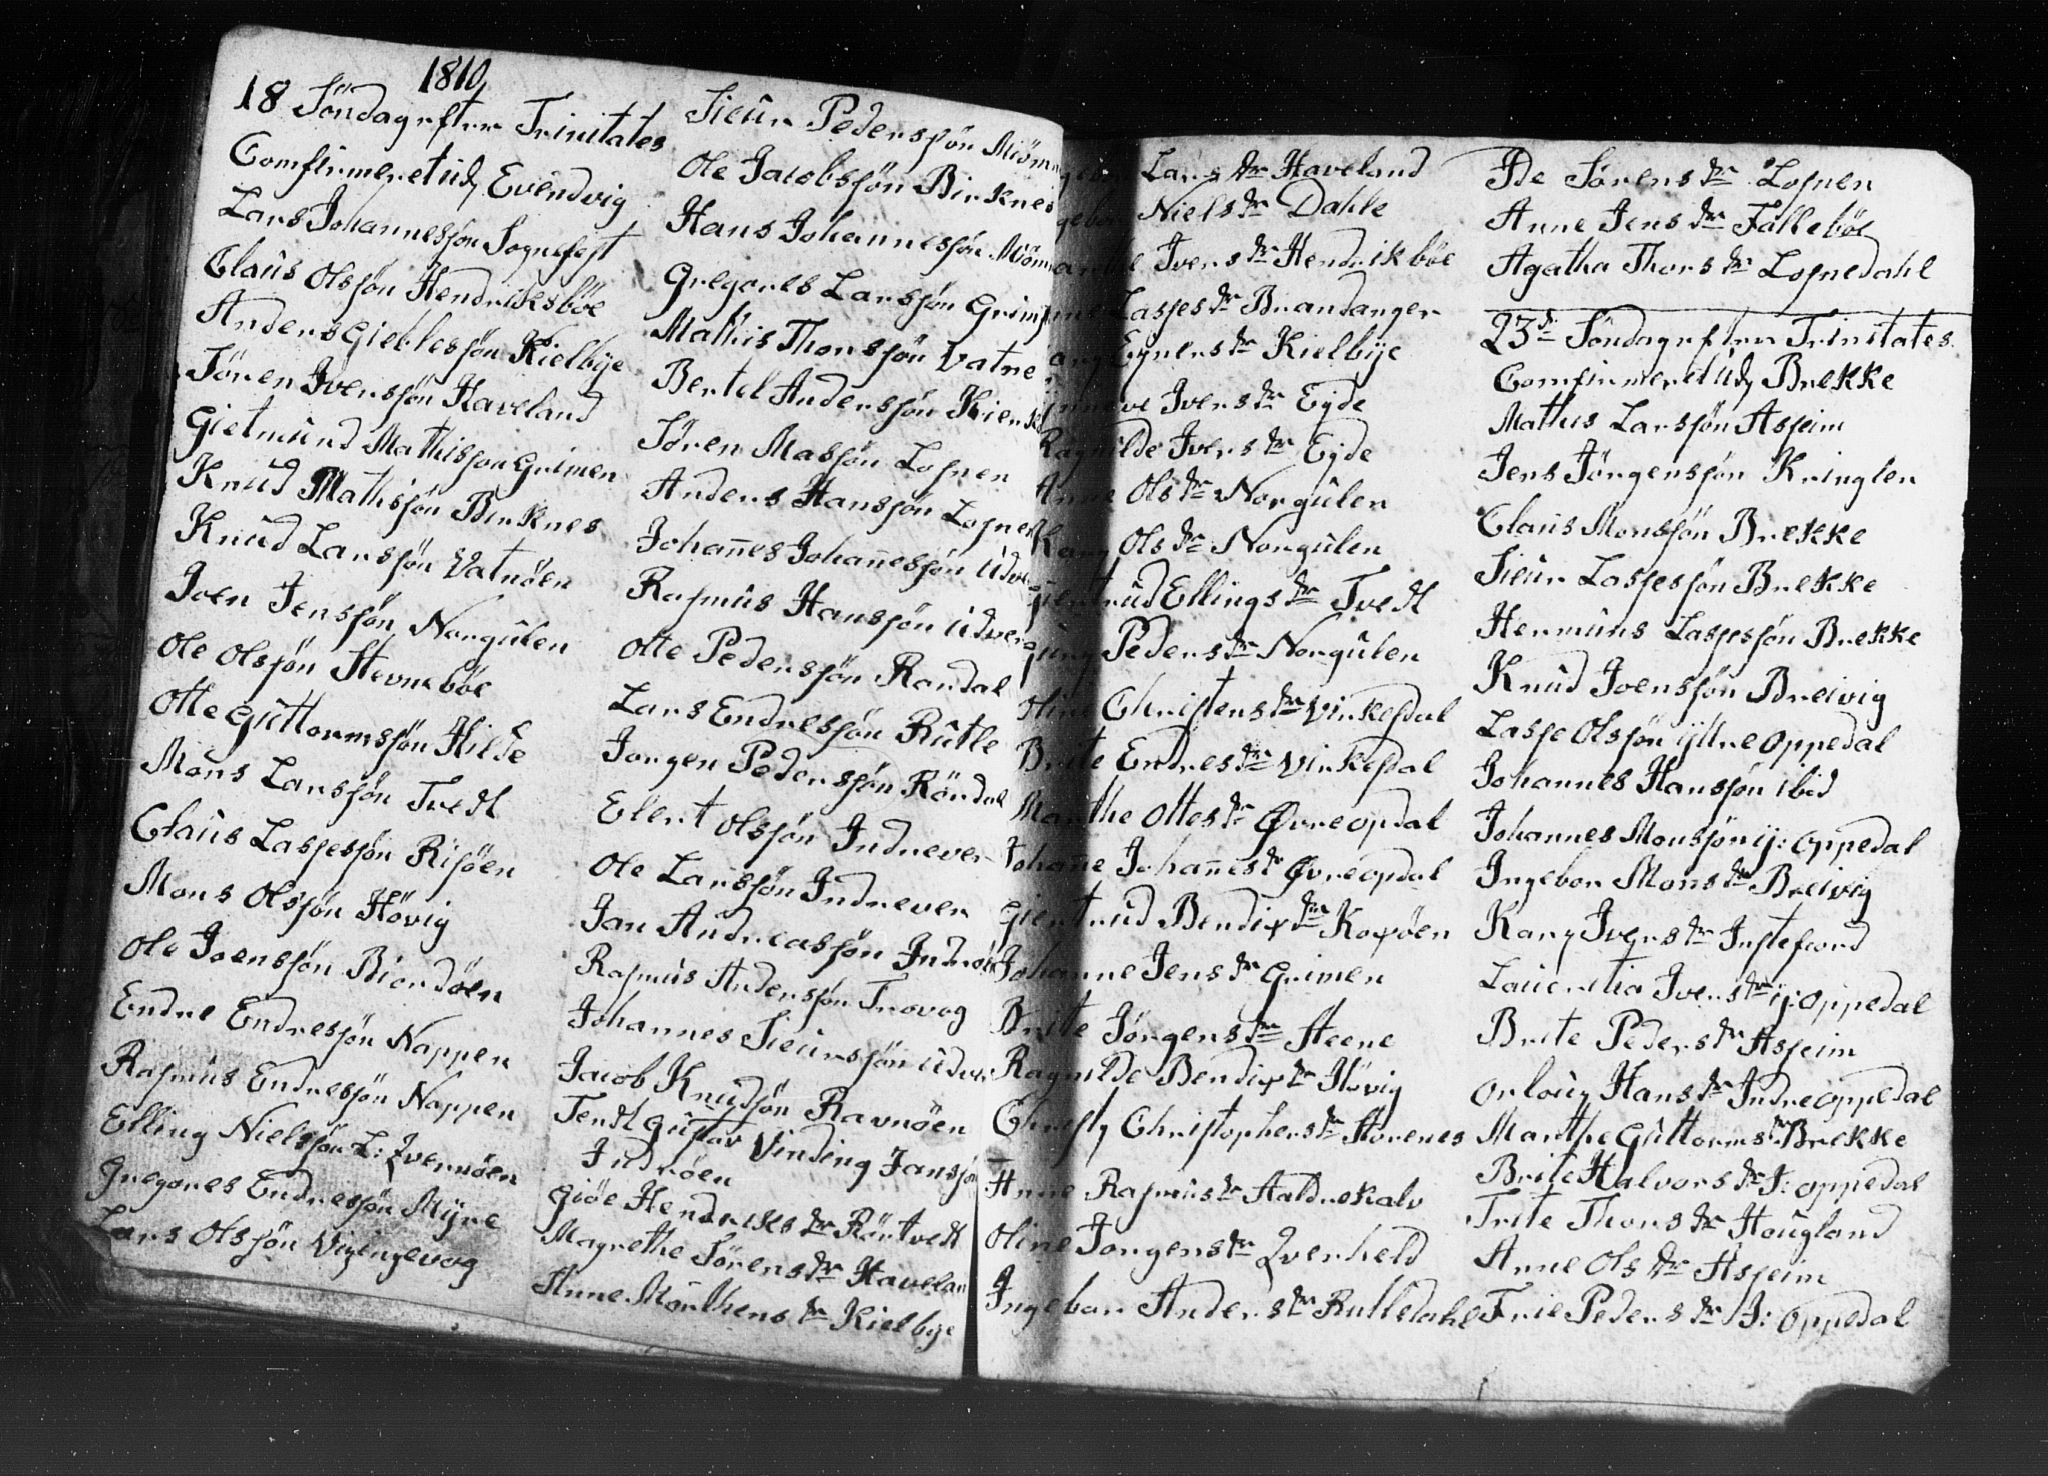 1810
18 Söndag efter Trinitates
Comfirmeret udj Evindvig
Lars Johannessøn Sognefest
Claus Olssøn Hendriksbøe
Anders Gieblessøn Kielbÿe
Sören Iverssøn Haveland
Gietmund Mathissøn Grimen
Knud Mathisøn Birknes
Knud Larssøn Vatnöen
Joen Jenssøn Norgulen
Ole Olssøn Stevnebøe
Otte Guttormssøn Hilde
Mons Larssøn Tvedt
Claus Lassessøn Risöen
Mons Olssøn Hövig
Ole Joenssøn Biordöen
Endre Endresøn Nappen
Rasmus Endresøn Nappen
Elling Nielssøn L: Qvernöen
Gregores Endresøn Mÿre
Lars Olssøn Vigingevog
Sieur Pederssøn
Ole Jacobssøn Birknes
Hans Johannessøn
Gregores Larssøn
Mathis Thorssøn Vatne
Bertel Anderssøn
Sören Massøn Losnen
Anders Hanssøn
Johan̄es Johan̄essøn
Rasmus Hanssøn
Otte Pederssøn Randal
Lars Endresøn Rutle
Jorgen Pederssøn Röndal
Elert Olssøn Indrever
Ole Larssøn Indrever
Jan Andreassøn
Rasmus Anderssøn Trovog
Johannes Sieurssøn
Jacob Knudsøn Ravnöen
Tendt Gustav Vinding Janssøn
Indröen
Giöe Hendriks dr Röntvedt
Magrethe Sörens dr
Anne Morthens dr Kielbÿe
Lars dr Haveland
Niels dr Dahle
Ivers dr Hendrikbøe
Lasses dr Brandanger
Egners dr Kielbÿe
Ivers dr Eÿde
Ragnilde Ivers dr Eÿde
Anne Ols dr Norgulen
Kary Ols dr Norgulen
Giertrud Ellings dr Tvedt
Peders dr Norgulen
Oline Christens dr Virkesdal
Brite Endres dr Virkesdal
Marthe Ottes dr Øvreopdal
Johan̄e Johan̄es dr Øvreopdal
Giertrud Bendix dr Koxöen
Johanne Jens dr Grimen
Brite Jörgens dr Steene
Ragnilde Bendix dr Hövig
Christy Christophers dr Storenes
Anne Rasmus dr Haldrekalv
Oline Jorgens dr Qverheld
Ingebor Anders dr Rutledahl
Ide Sörens dr Losnen
Anne Jens dr Fallebøe
Agatha Thors dr Losnedahl
23de Söndag efter Trinitates
Comfirmeret udj Brekke
Mathis Larssøn Asseim
Jens Jörgenssøn Kringlen
Claus Monssøn Brekke
Sieur Lassessøn Brekke
Hermuns Lassessøn Brekke
Knud Joenssøn Breivig
Lasse Olssøn ÿttre Oppedal
Johannes Hanssøn ibid
Johannes Monssøn ÿ: Oppedal
Ingebor Mons dr Breivig
Kary Ivers dr Instefiord
Laurentia Ivers dr ÿ: Oppedal
Brite Peders dr Asseim
Orlaug Hans dr Indre Oppedal
Marthe Guttorms dr Brekke
Brite Halvors dr J: Oppedal
Brite Thors dr Hougland
Anne Ols dr Asseim
Peders dr J: Oppedal